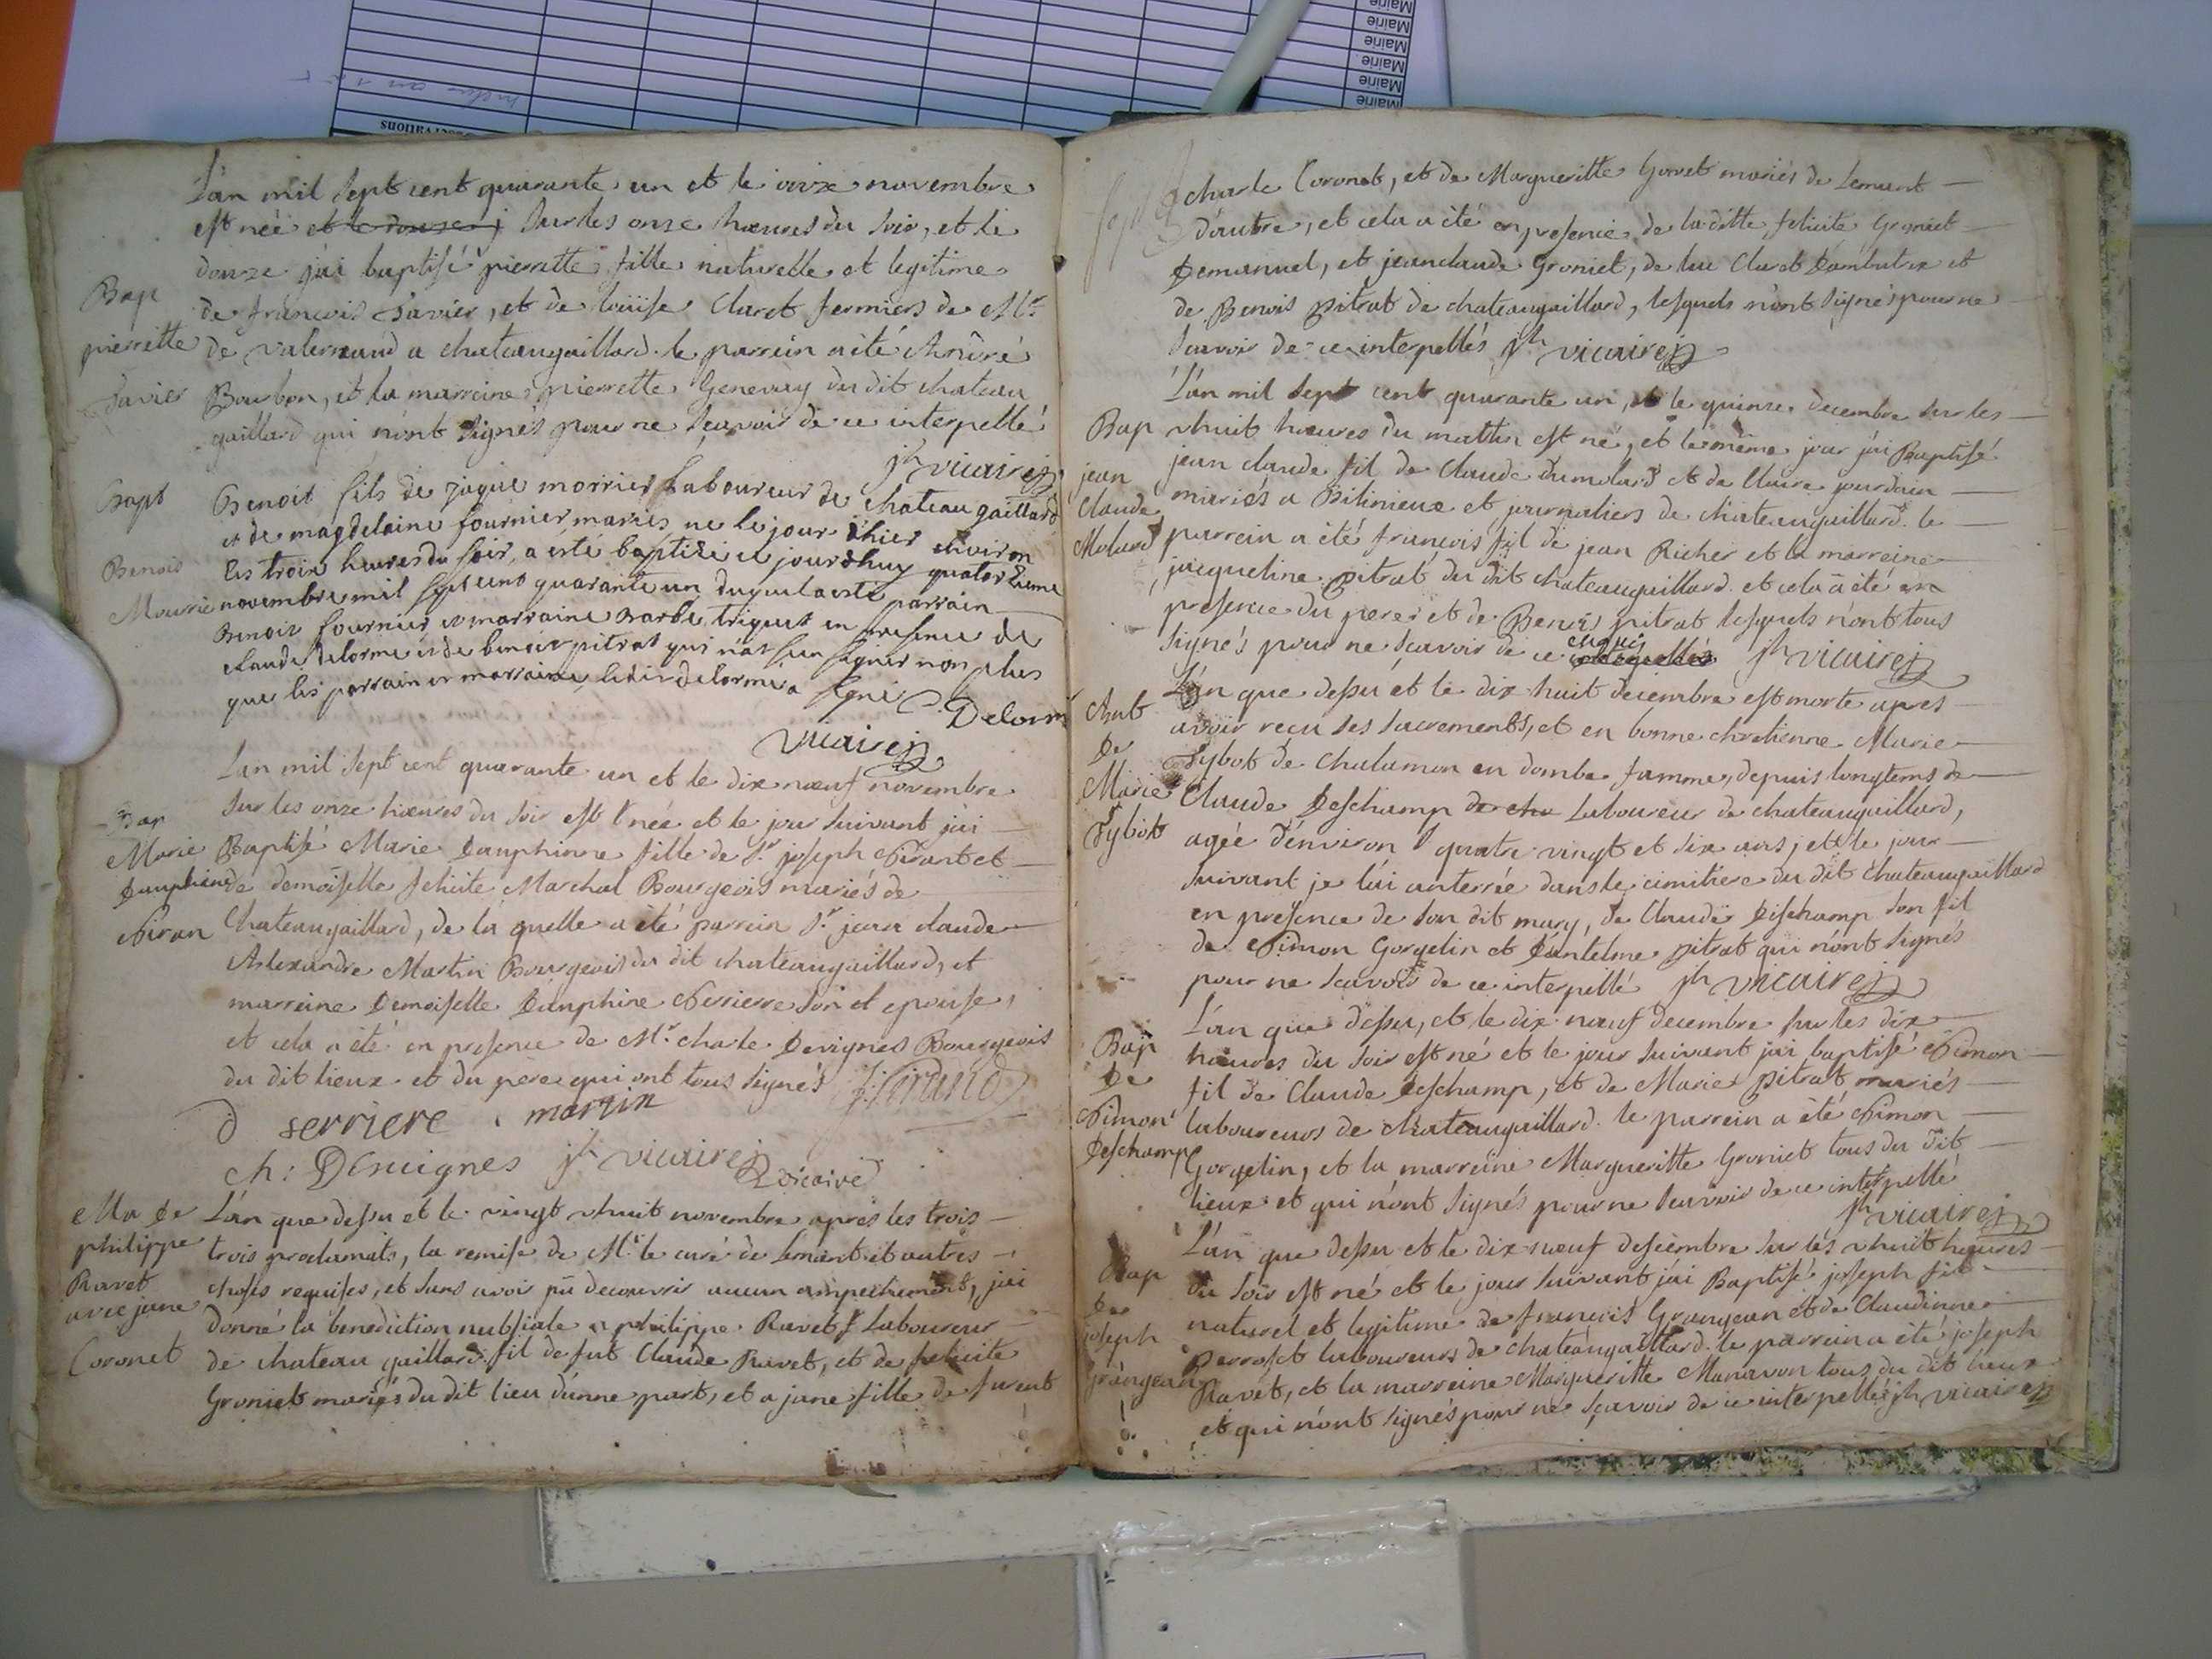 Mairie
Mairie
Mairie
Mairie
Mairie
Mairie
L'an mil sept cent quarante un et le onze novembre
est née et le douze sur les onze hœures du soir, et le
douze j'ai baptisé pierrette fille naturelle et legitime
Bap
de françois Savier, et de loüise Claret fermiers de Mr
pierrette
de valernaud a chateaugaillard. le parrein a été André
Savier
Bourbon, et la marreine pierrette Genevay du dit chateau
gaillard qui n'ont signés pour ne sçavoir de ce interpellé
jh vicaire
Bapt
Benoit fils de jaque morrier Laboureur de chateau gaillard
et de magdelaine fournier mariés ne le jour d'hier environ
Benois
les trois heures du soir, a esté baptisé ce jourdhuy quatorzieme
Mourié
novembre mil sept cent quarante un duquel a esté parrain
Benoit fournier et marraine Barbe triquet en presence de
claude delorme et de benoit pitrat qui n'at sçeu signer non plus
que les parrain et marraine, ledit delorme a signé C. Delorm
vicaire
L'an mil sept cent quarante un et le dix nœuf novembre
sur les onze hœures du soir est née et le jour suivant j'ai
Bap
Marie
Baptisé Marie Dauphinne fille de Sr joseph Sirant et
Dauphine
de demoiselle felicite Marchal Bourgeois mariés de
Siran
Chateaugaillard, de la quelle a été parrein Sr jean claude
Alexandre Martin Bourgeois du dit chateaugaillard, et
marreine Demoiselle Dauphine Serriere son epouse,
et cela a été en presence de Mr charle Devignes Bourgeois
du dit lieux et du pere qui ont tous signés J: Sirand
D serriere martin
ch: Deuignes jh vicaire
vicaire
Ma De
L'an que dessu et le vingt vhuit novembre après les trois
philippe
trois proclamats, la remise de Mr le curé de Lemant et autres
Ravet
choses requises, et sans avoir pû decouvrir aucun ampechement, j'ai
avec jane
donné la benediction nubsiale a philippe Ravet Laboureur
Coronet
de chateau gaillard fil de fut Claude Ravet, et de felicite
Groniet mariés du dit lieu d'unne part, et a jane fille de furent
charle Coronet, et de Margueritte Gonet mariés de Lemant
d'autre, et cela a été en presence de la ditte felicite Groniet
Demanuel, et jeanclaude Groniet, de luc Claret Dambutrix et
de Benois Pitrat de chateaugaillard, lesquels n'ont signés pour ne
sçavoir de ce interpellés jh vicaire
L'an mil sept cent quarante un, et le quinze decembre sur les
Bap
vhuit hœures du mattin est né, et le même jour j'ai Baptisé
jean
jean claude fil de Claude Dumolard et de Claire jourdain
Claude
mariés a Bilinieux et journaliers de chateaugaillard. le
Molard
parrein a été françois fil de jean Richer et la marreine
jacqueline pitrat du dit chateaugaillard. et cela a été en
presence du perer et de Benois pitrat lesquels n'ont tous
signés pour ne sçavoir de ce enquis jh vicaire
L'an que dessu et le dix huit decembre est morte apres
Ant
avoir reçu ses sacrements, et en bonne chretienne Marie
De
Marie
Tybot de Chalamon en dombe famme, depuis longtems de
Tybot
Claude Deschamp de cha Laboureur de chateaugaillard,
agée d'environ quatre vingt et dix ans, et le jour
suivant je l'ai anterrée dans le cimitiere du dit chateaugaillard
en presence de son dit mary, de Claude Deschamp son fil
de Simon Gorgelin et Dantelme pitrat qui n'ont signés
pour ne sçavoir de ce interpellé jh vicaire
L'an que dessu, et le dix nœuf decembre sur les dix
Bap
hœures du soir est né et le jour suivant j'ai baptisé Simon
De
fil de Claude Deschamp, et de Marie pitrat mariés
Simon
laboureurs de chateaugaillard. le parrein a été Simon
Deschamp
Gorgelin, et la marreine Margueritte Groniet tous du dit
lieux et qui n'ont signés pour ne sçavoir de ce interpellé
jh vicaire
L'an que dessu et le dix nœuf desembre sur les vhuit heures
Bap
du soir est né et le jour suivant j'ai Baptisé joseph fil
De
naturel et legitime de françois Grangean et de Claudinne
joseph
Perroset laboureurs de chateaugaillard. le parrein a été joseph
Grangean
Ravet, et la marreine Margueritte Manavon tous du dit lieux
et qui n'ont signés pour ne sçavoir de ce interpellé jh vicaire